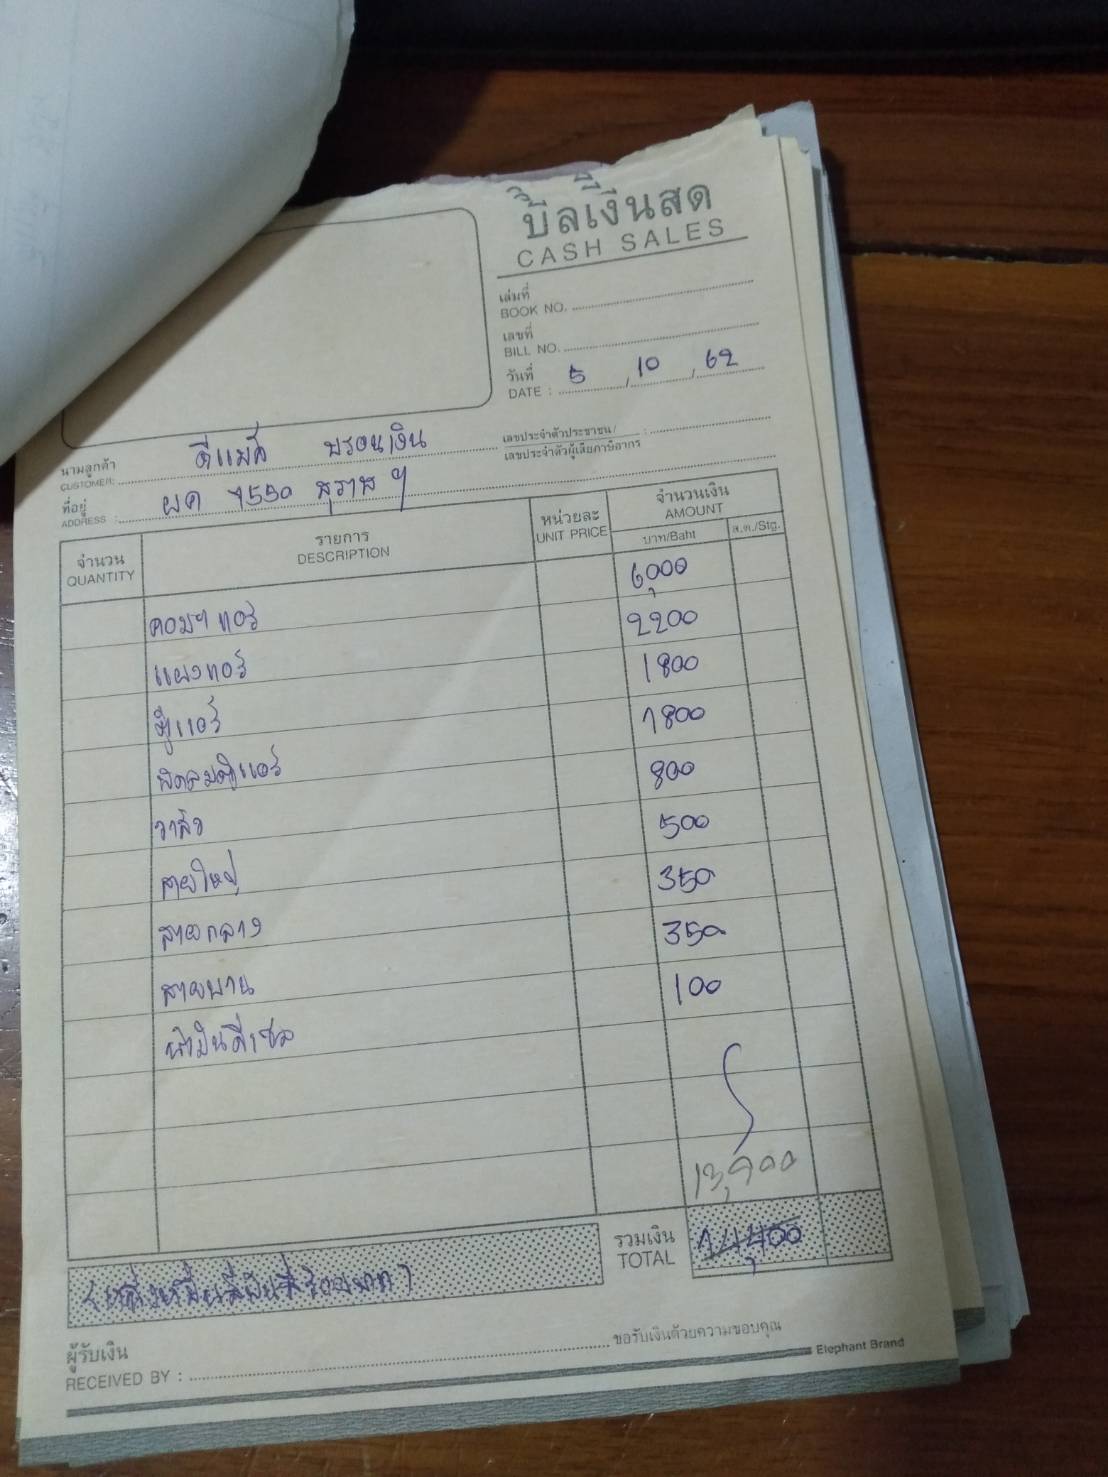 บิลเงินสด
CASH SALES
เล่มที่
BOOK NO.
เลขที่
BILL NO.
วันที่ 5 , 10 , 62
DATE :
นามลูกค้า ดีแม็ค พรอนเงิน
CUSTOMER:
เลขประจำตัวประชาชน/
เลขประจำตัวผู้เสียภาษีอากร :
ที่อยู่ ผค 7550 สุราษฯ
ADDRESS :
จำนวน รายการ หน่วยละ จำนวนเงิน
QUANTITY DESCRIPTION UNIT PRICE AMOUNT
บาท/Baht ส.ต./Stg.
คอมฯ แอร์ 6,000
แผงแอร์ 2200
ตู้แอร์ 1800
พัดลมตู้แอร์ 1800
วาล์ว 800
สายใหญ่ 500
สายกลาง 350
สายพาน 350
น้ำมันดีเซล 100
13,900
รวมเงิน 14,400
TOTAL
(หนึ่งหมื่นสี่พันสี่ร้อยบาท)
ผู้รับเงิน
RECEIVED BY :
ขอรับเงินด้วยความขอบคุณ
Elephant Brand